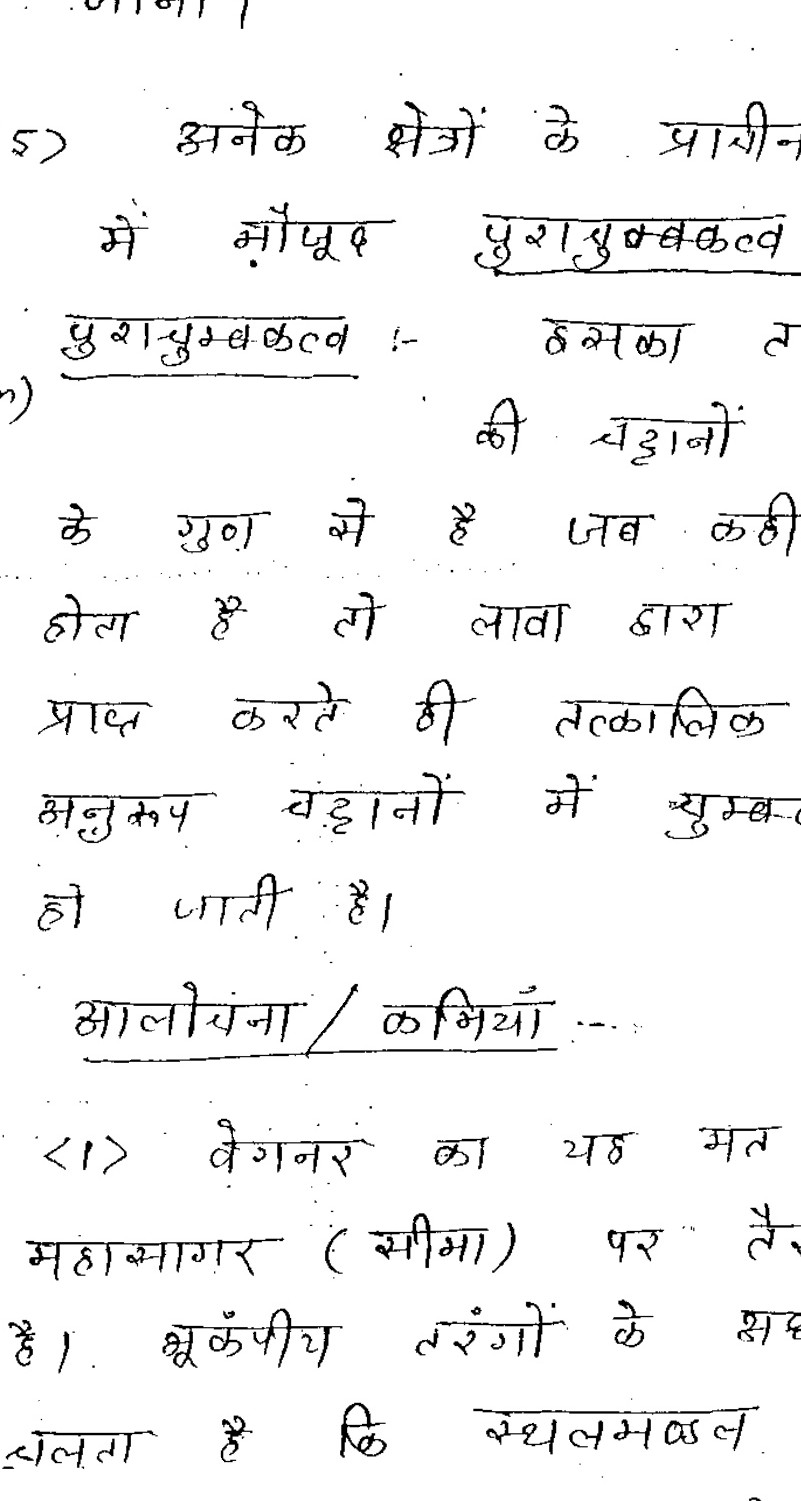 5) अनेक क्षेत्रों के प्राचीन
में मौजूद पुराचुम्बकत्व
पुराचुम्बकत्व :- इसका त
की चट्टानों
के गुण से है जब कही
होता है तो लावा द्वारा
प्राप्त करते ही तत्कालिक
अनुरूप चट्टानों में चुम्बक
हो जाती है।
आलोचना / कमियाँ :--
<1> वेगनर का यह मत
महासागर (सीमा) पर तैर
है। भूकँपीय तरंगों के अध
चलता है कि स्थलमण्डल